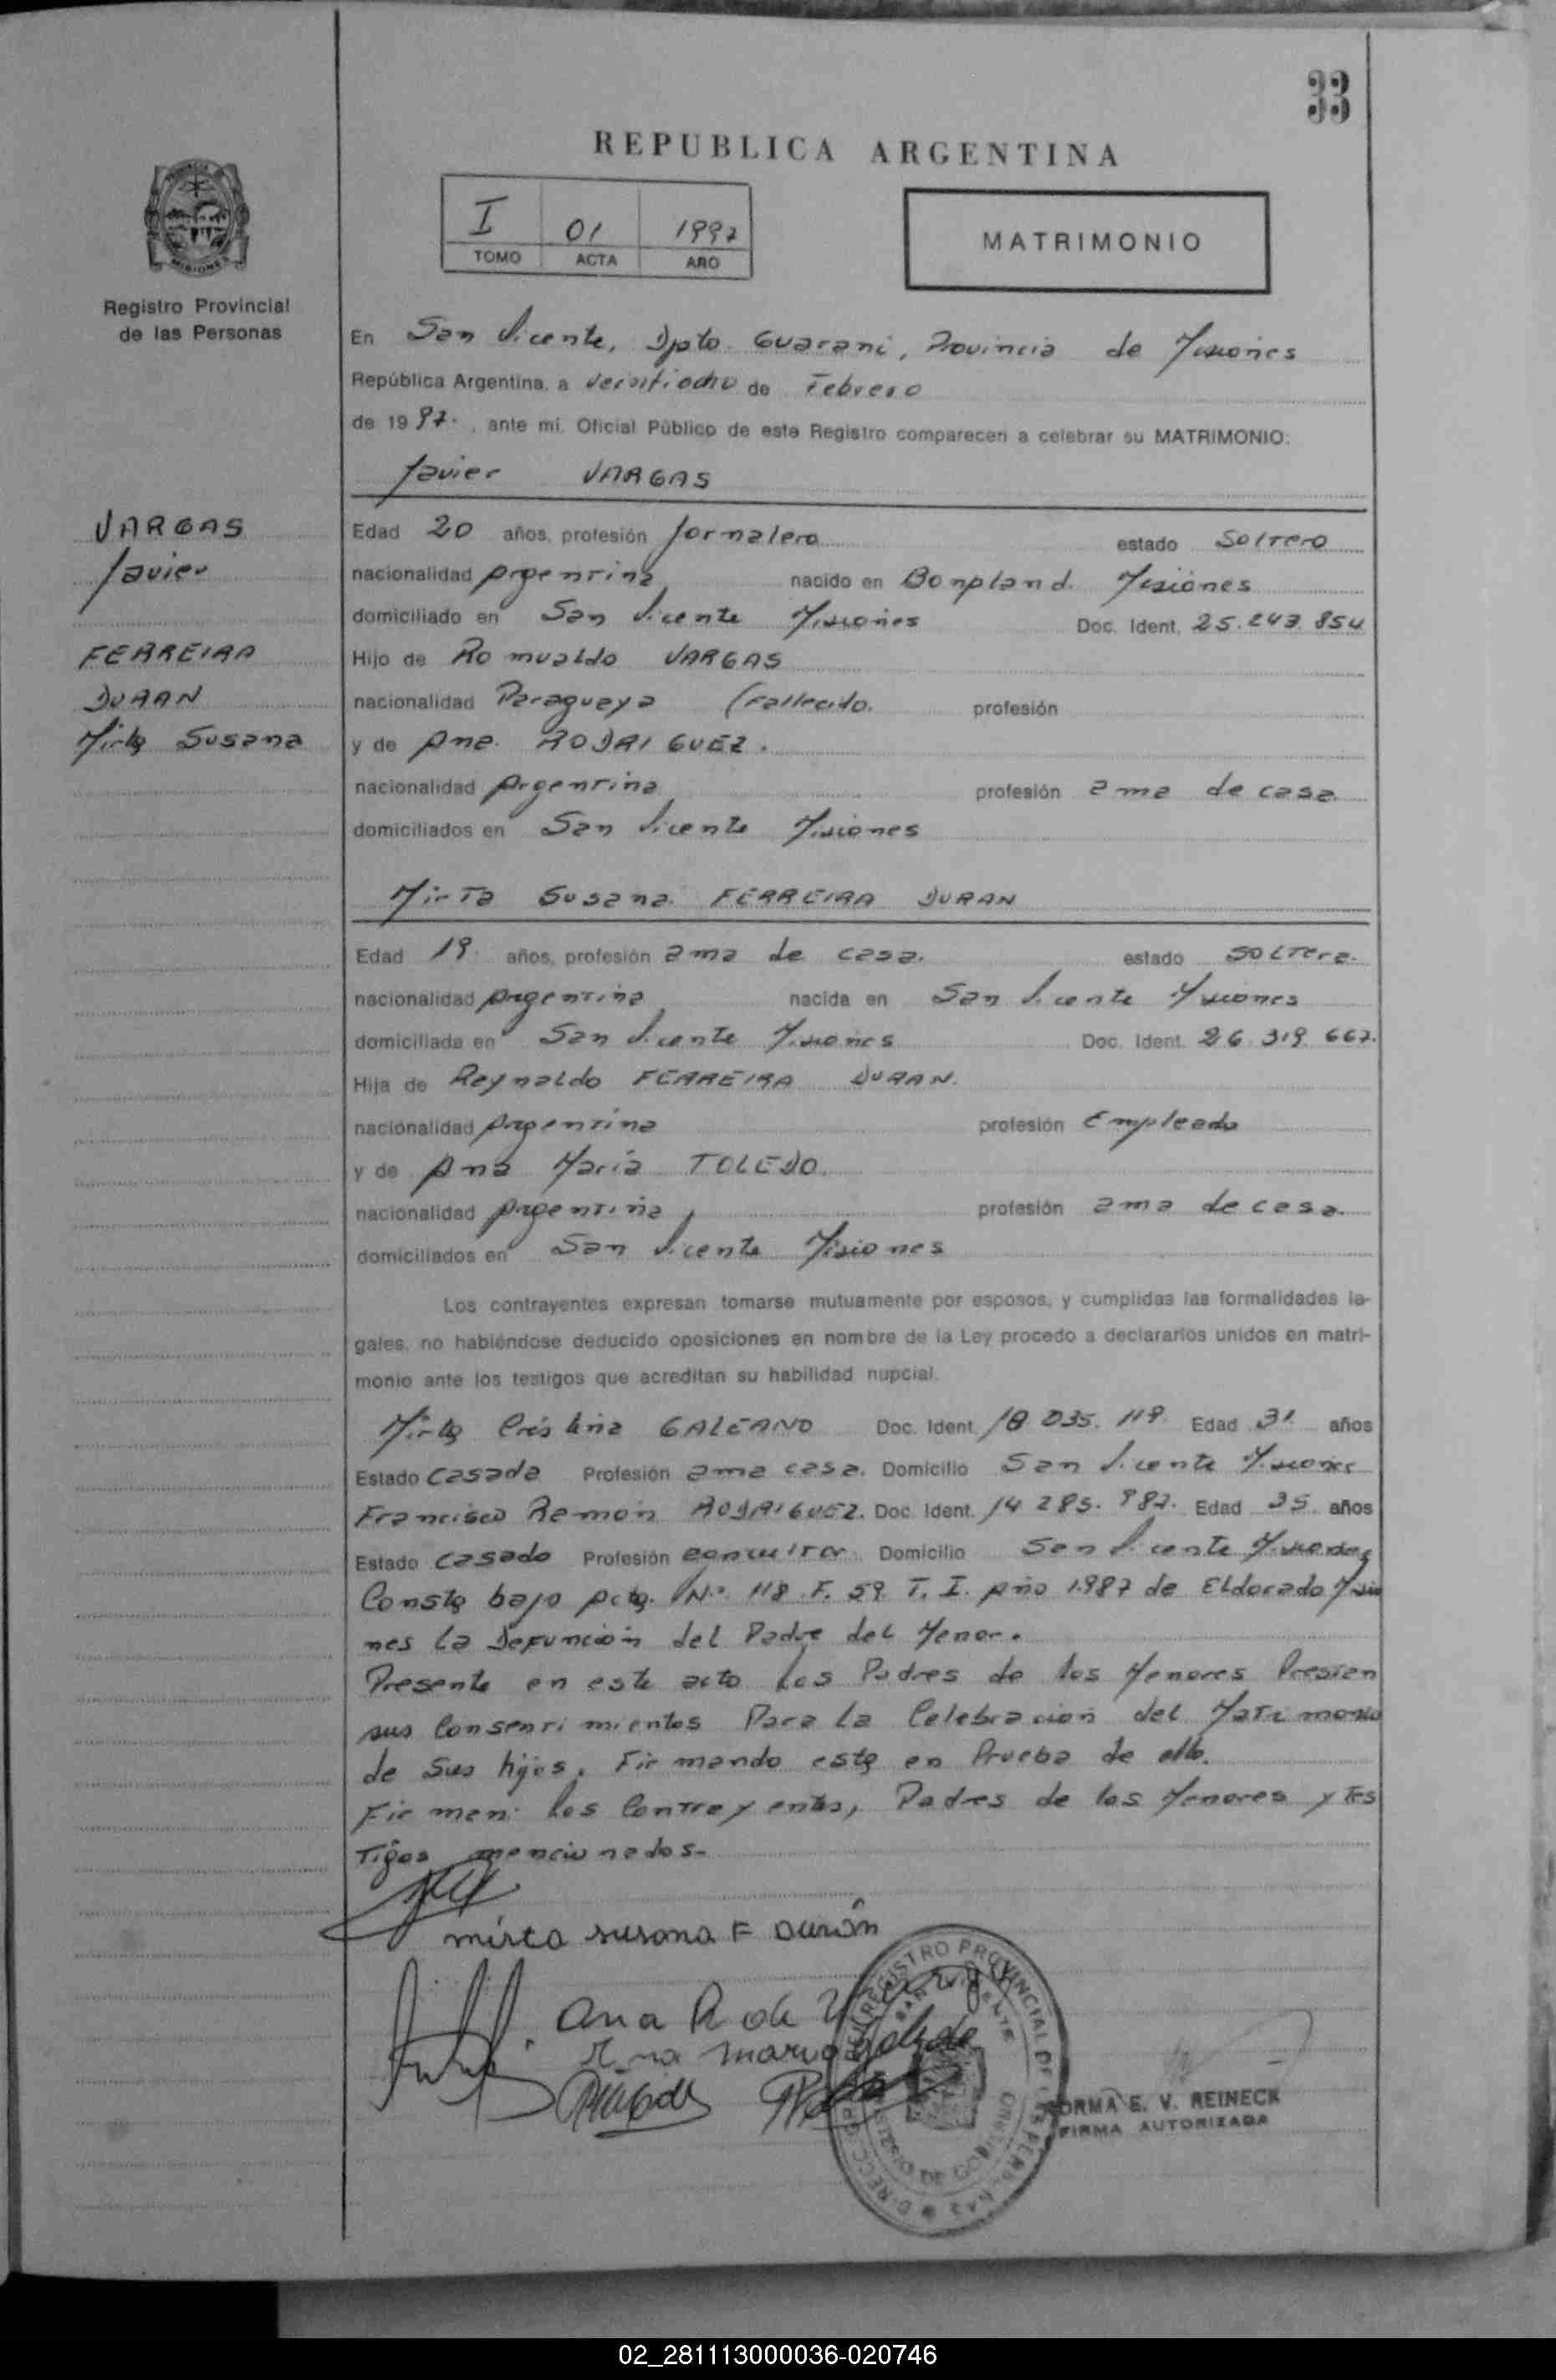 33
REPUBLICA ARGENTINA
I 01 1997
TOMO ACTA AÑO
MATRIMONIO
PROVINCIA
MISIONES
Registro Provincial
de las Personas
En San Vicente, Dpto. Guarani, Provincia de Misiones
República Argentina, a veintiocho de Febrero
de 1997. , ante mí, Oficial Público de este Registro comparecen a celebrar su MATRIMONIO:
Javier VARGAS
VARGAS
Javier
FERREIRA
DURAN
Mirta Susana
Edad 20 años, profesión Jornalero estado Soltero
nacionalidad Argentina nacido en Bonpland. Misiones
domiciliado en San Vicente Misiones Doc. Ident. 25.243.854
Hijo de Romualdo VARGAS
nacionalidad Paraguaya (Fallecido. profesión
y de Ana. RODRIGUEZ.
nacionalidad Argentina profesión ama de casa.
domiciliados en San Vicente Misiones
Mirta Susana. FERREIRA DURAN
Edad 19. años, profesión ama de casa. estado SOLTERA.
nacionalidad Argentina nacida en San Vicente Misiones
domiciliada en San Vicente Misiones Doc. Ident. 26.319.667.
Hija de Reynaldo FERREIRA DURAN.
nacionalidad Argentina profesión Empleado
y de Ana María TOLEDO.
nacionalidad Argentina profesión ama de casa.
domiciliados en San Vicente Misiones
Los contrayentes expresan tomarse mutuamente por esposos, y cumplidas las formalidades le-
gales, no habiéndose deducido oposiciones en nombre de la Ley procedo a declararlos unidos en matri-
monio ante los testigos que acreditan su habilidad nupcial.
Mirta Cristina GALEANO Doc. Ident. 18 035. 119. Edad 31. años
Estado Casada Profesión ama casa. Domicilio San Vicente Misiones
Francisco Ramón RODRIGUEZ. Doc. Ident. 14 285. 982. Edad 35. años
Estado Casado Profesión Domicilio San Vicente Misiones
Consta bajo Acta. Nº 118 F. 59. T. I. Año 1987 de Eldorado Misio
nes la Defuncion del Padre del Menor.
Presente en este acto los Padres de los Menores Prestan
sus Consentimientos Para la Celebracion del Matrimonio
de Sus hijos, Firmando esta en Prueba de ello.
Firman: los Contrayentes, Padres de los Menores y Tes
Tigos mencionados.
mirta susana F Durán
Ana R de Vargas
Ana Maria Toledo
DIRECC. GRAL. DEL REGISTRO PROVINCIAL DE LAS PERSONAS
MINISTERIO DE GOBIERNO
NORMA E. V. REINECK
FIRMA AUTORIZADA
02_281113000036-020746